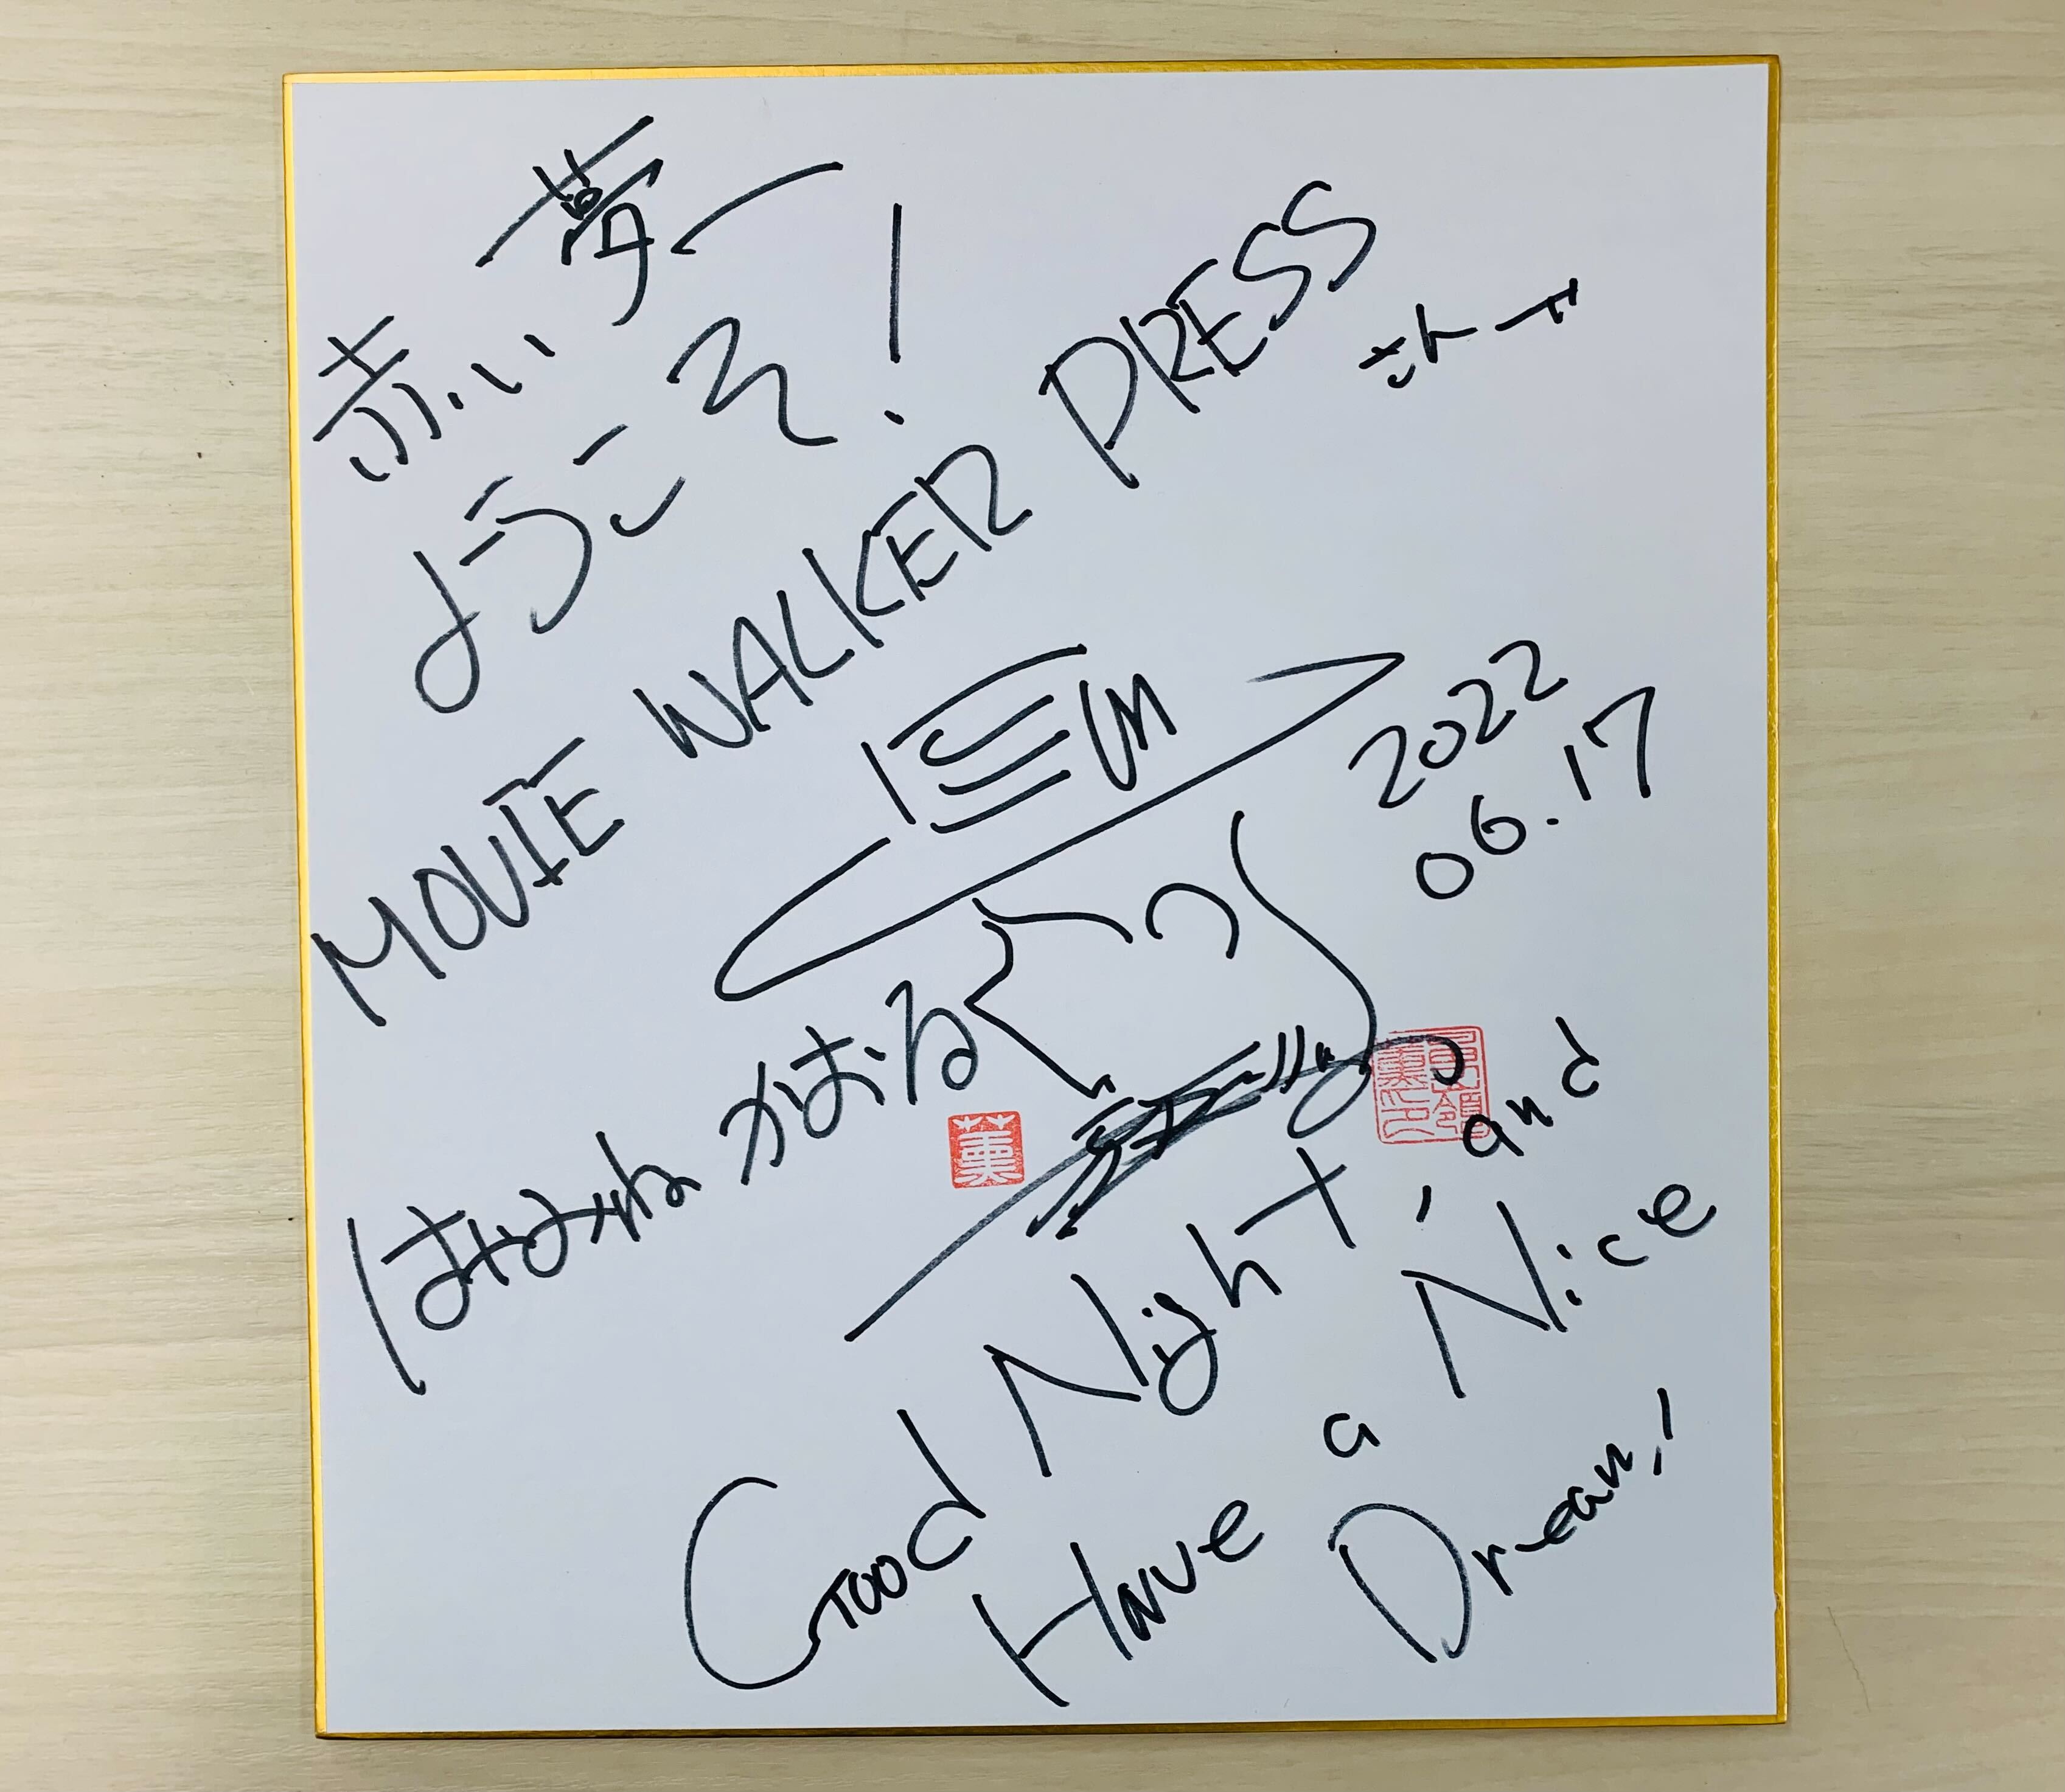 赤い夢へ
ようこそ!
MOVIE WALKER PRESS
さんへ
2022
06.17
はやみね かおる
薫
Good Night, and
Have a Nice
Dream!